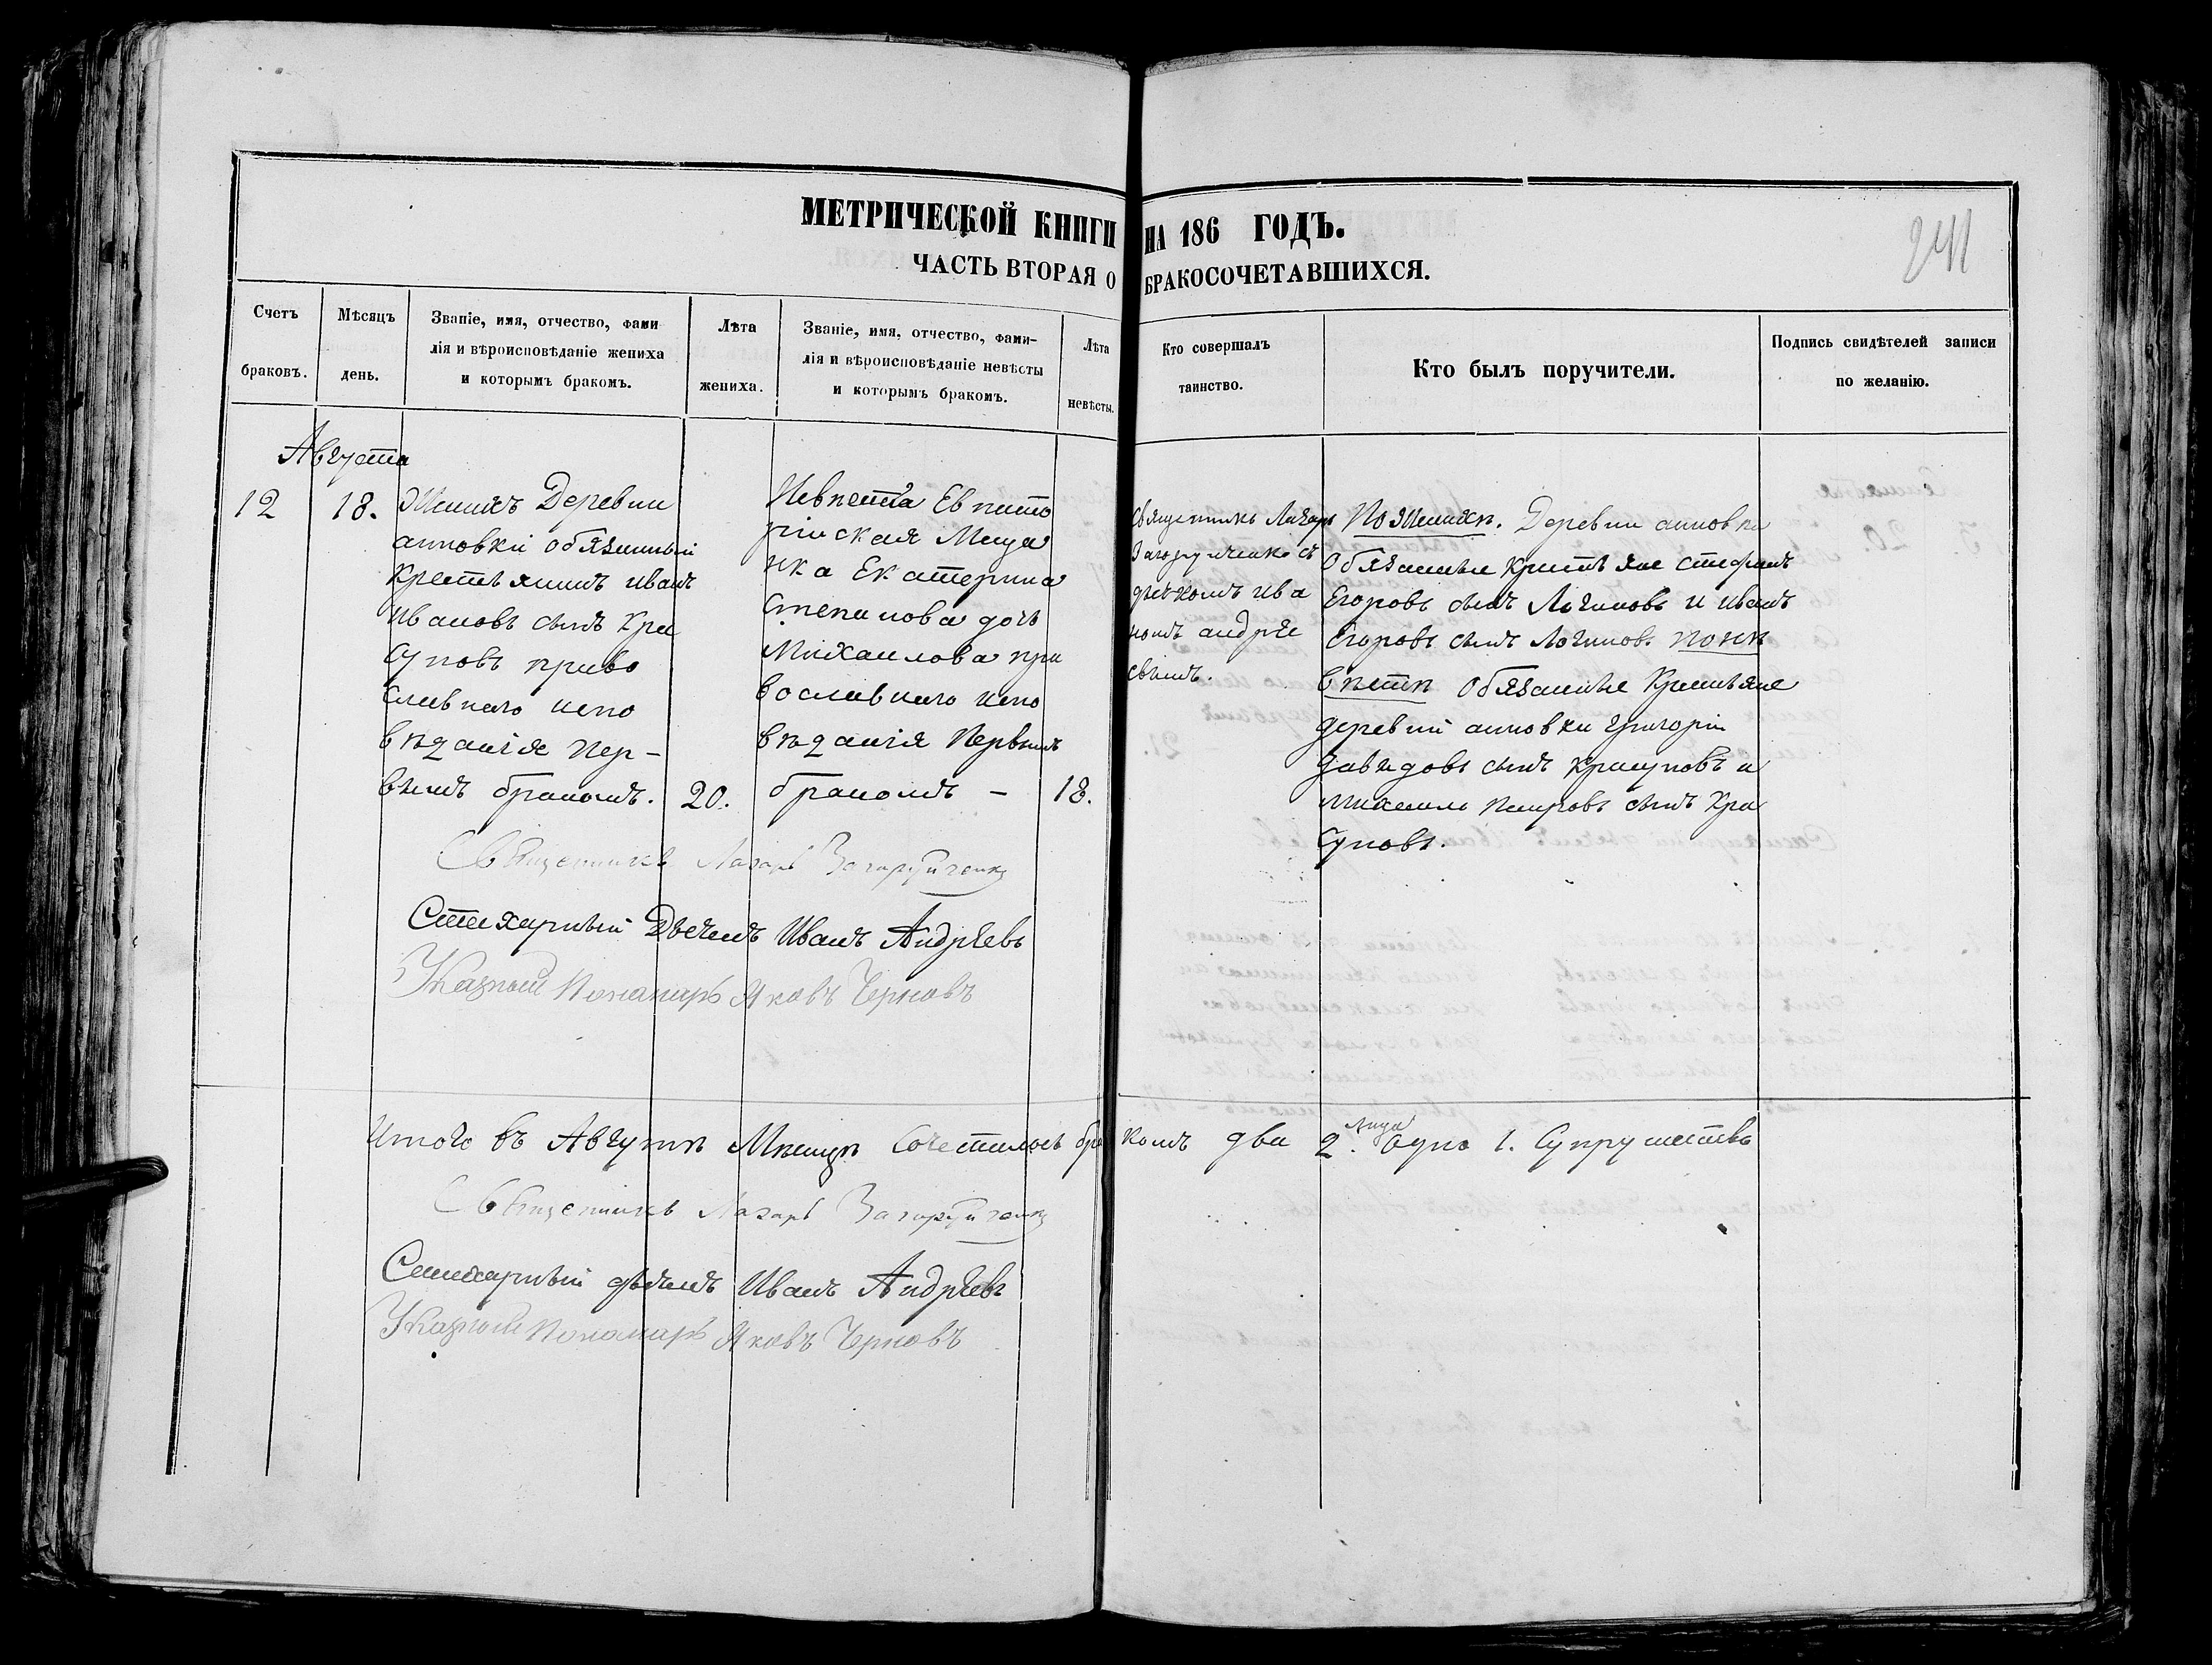 МЕТРИЧЕСКОЙ КНИГИ НА 186 ГОДЪ.
241
ЧАСТЬ ВТОРАЯ О БРАКОСОЧЕТАВШИХСЯ.
Счетъ браковъ.
Мѣсяцъ день.
Званіе, имя, отчество, фами
лія и вѣроисповѣданіе жениха
и которымъ бракомъ.
Лѣта жениха.
Званіе, имя, отчество, фами-
лія и вѣроисповѣданіе невѣсты
и которымъ бракомъ.
Лѣта невѣсты.
Кто совершалъ
таинство.
Кто былъ поручители.
Подпись свидѣтелей записи
по желанію.
Августа
12
18.
Женихъ Деревни
анновки обязанный
крестьянинъ иванъ
ивановъ сынъ Кра
суновъ право
славнаго испо
вѣданія пер-
вымъ бракомъ.
20.
Невѣста Евпато
рійская Меща
нка Екатерина
Степанова дочь
Михаилова пра
вославнаго испо
вѣданія Первымъ
бракомъ -
18.
Священникъ Лазарь
Загоруйченко съ
дьячкомъ ива
номъ андрѣе
вымъ.
По женихѣ. Деревни анновки
Обязанные крестьяне стефанъ
Егоровъ сынъ Логиновъ и иванъ
Егоровъ сынъ Логиновъ. по не
вѣстѣ Обязанные Крестьяне
деревни анновки григорій
давидовъ сынъ красуновъ и
михаилъ петровъ сынъ Кра
суновъ.
Священникъ Лазарь Загоруйченко
Стихарный Дьячекъ Иванъ Андрѣевъ
Указный Пономарь Яковъ Черновъ
Итого въ Августѣ Мѣсяцѣ Сочеталось бракомъ два 2. лица одно 1. Супружество
Священникъ Лазарь Загоруйченко
Стихарный дьячекъ Иванъ Андрѣевъ
Указный Пономарь Яковъ Черновъ